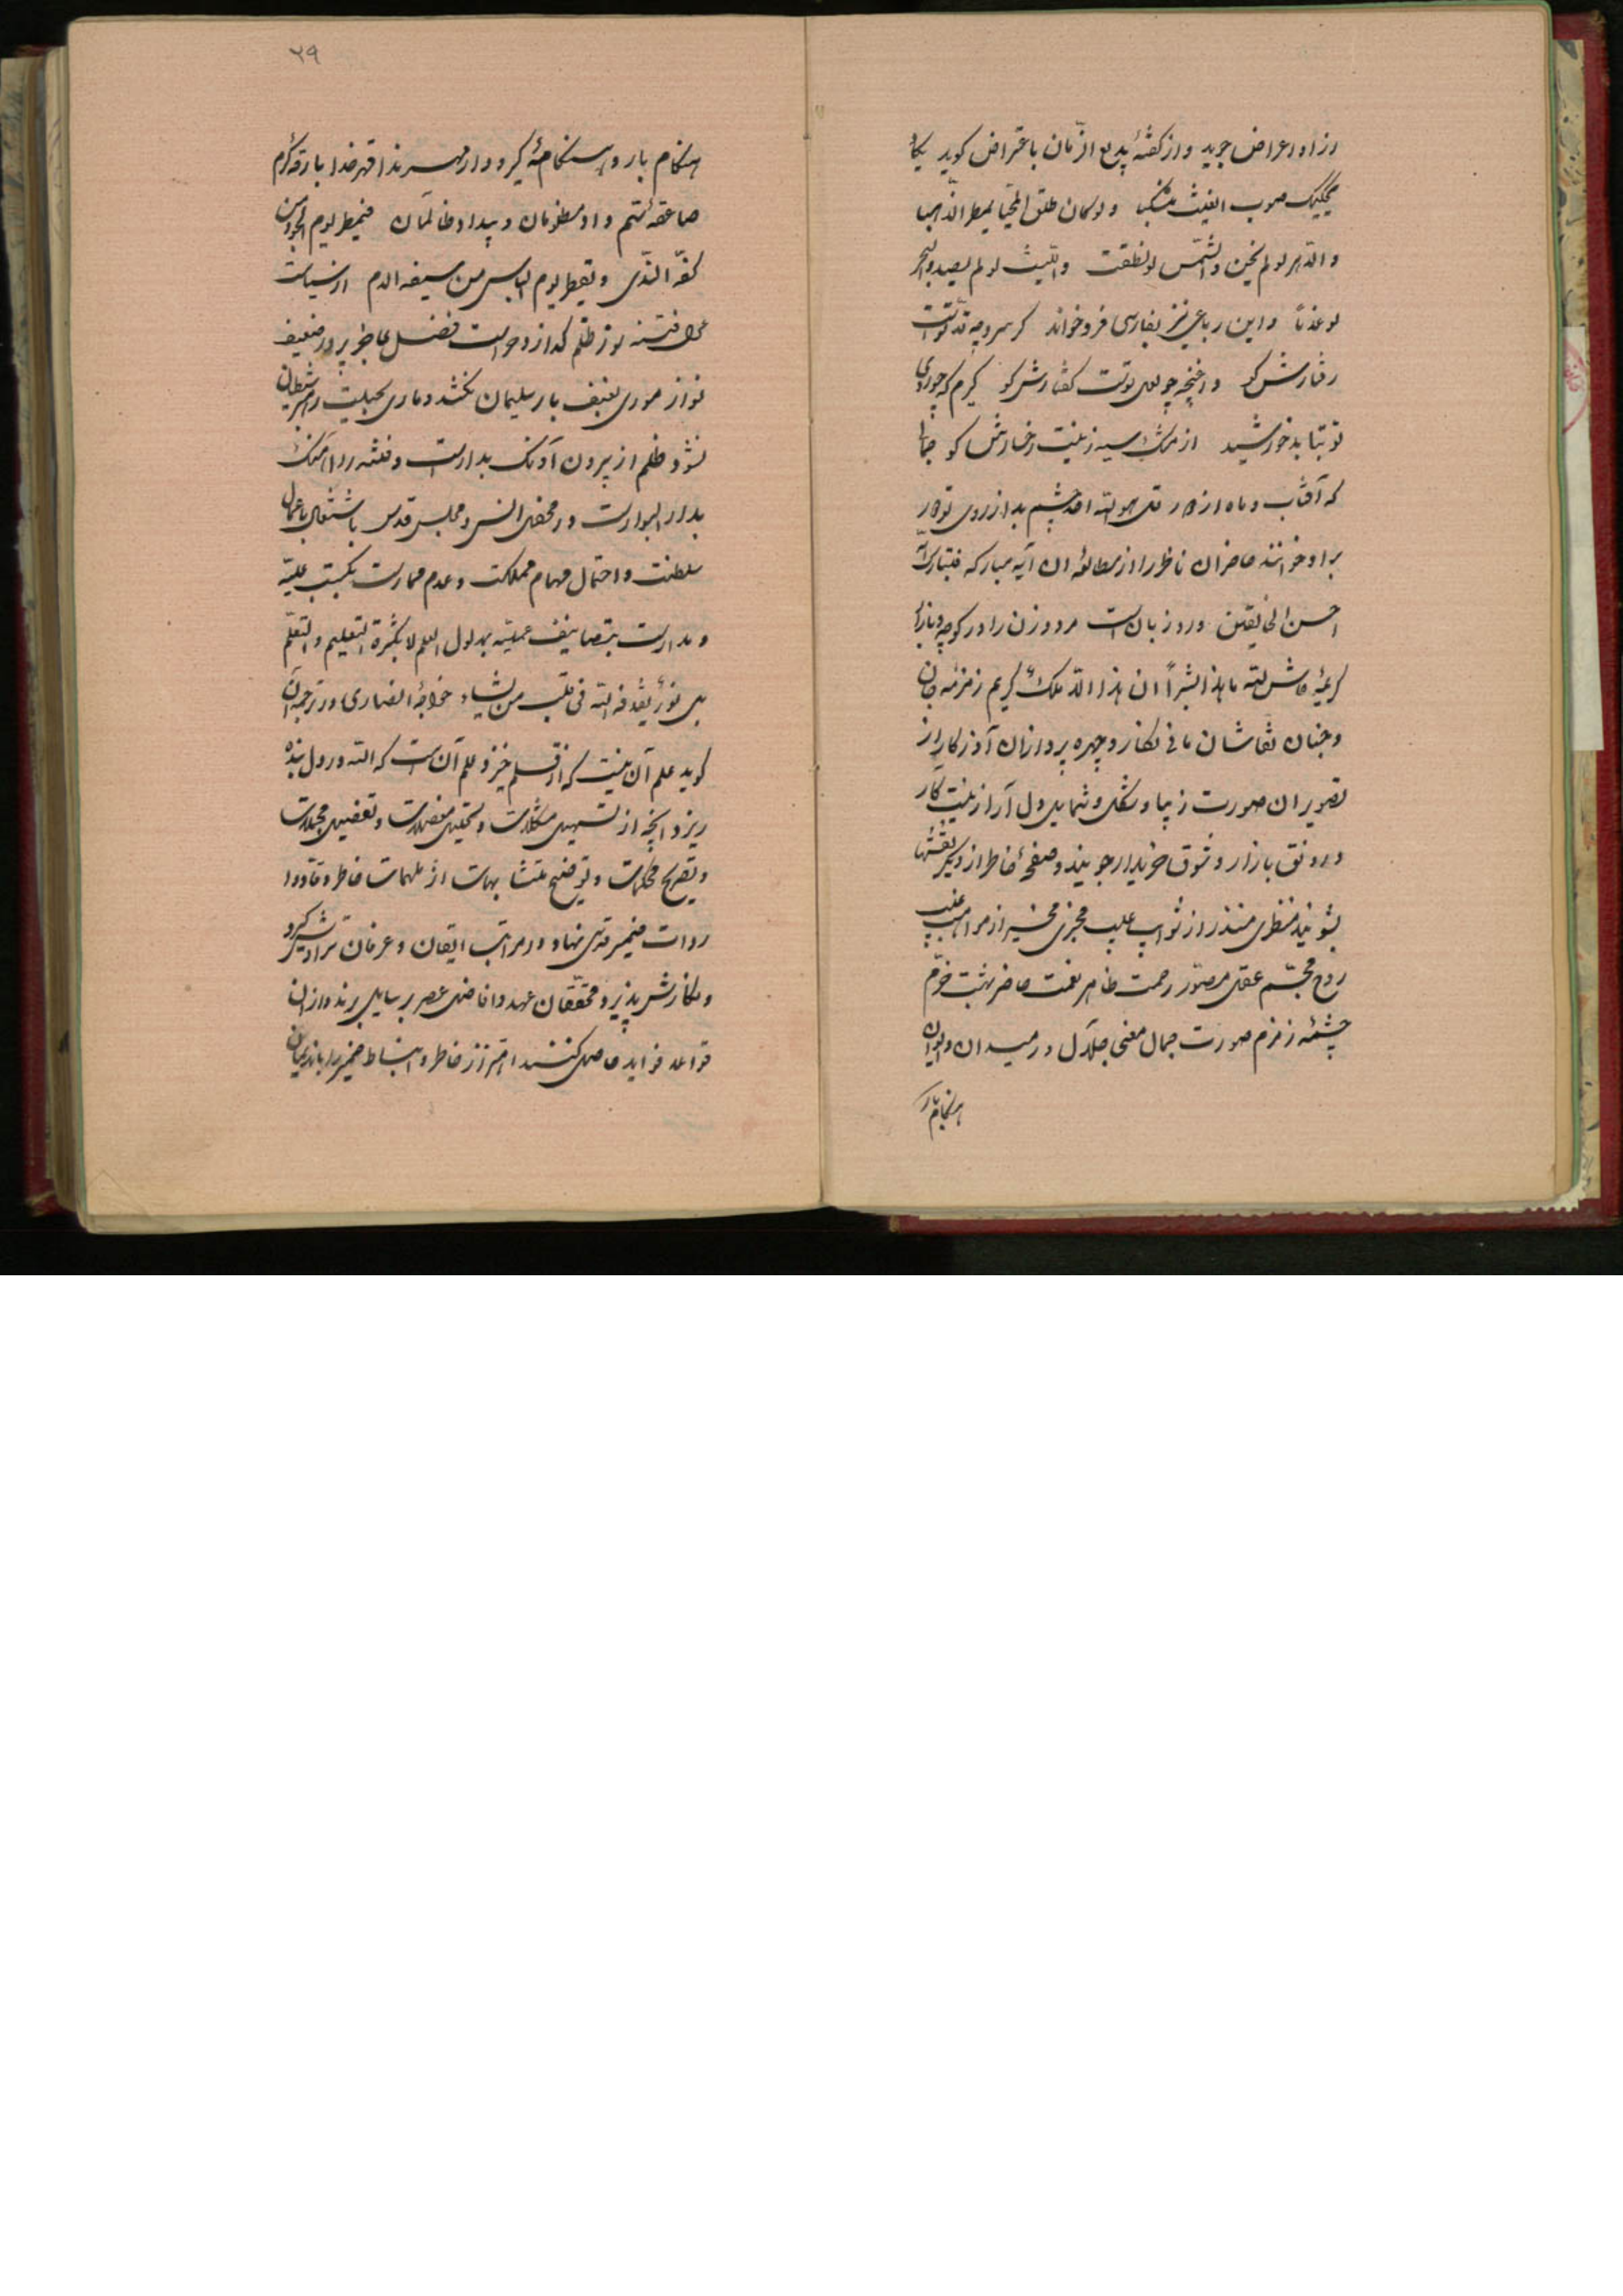 از او اعراض جوید و از گفتهٔ بدیع الزّمان باعتراض گوید یکاد
یحکیک صوب الغیث منسکبا و لو کان طلق المحیّا یمطر الذّهبا
و الدّهر لو لم یخن و الشّمس لو نطقت و اللّیث لو لم یصد و البحر
لو عذبا و این رباعی نیز بفارسی فرو خواند گر سرو چه قدّ تو است
رفتارش کو و ار غنچه چو لعل توست گفتارش کو گیرم که چو روی
تو بتابد خورشید از مشک سیه زینت رخسارش کو
که آفتاب و ماه از قل هو الله احد چشم بد از روی تو دور
بر او خوانند حاضران ناظر را از مطالعهٔ آن آیه مبارکه فتبارک الله
احسن الخالقین ورد زبان است مرد و زن را در کوچه و بازار
کریمهٔ حاش لله ما هذا بشراً ان هذا الّا ملکٌ کریم زمزمه جان
و جنان نقاشان مانی نگار و چهره پردازان آذر کار از
تصویر آن صورت زیبا و شکل و شمایل دل آرا زینت کار
و رونق بازار و شوق خریدار جویند و صفحهٔ خاطر از دیگر نقشها
بشویند منظری منذر از ثواب مخبری مخبر از مواهب
روح مجسّم عقل مصوّر رحمت ظاهر نعمت حاضر بهشت خرّم
چشمه زمزم صورت جمال معنی جلال در میدان و ایوان
هنگام بار
۲۹
هنگام بار و هنگامهٔ گیر و دار مهر قهر خدا بارقهٔ کرم
صاعقهٔ ستم داد مظلومان و بیداد ظالمان فیمطر یوم الجود من
کفّه النّدی و یقطر یوم البأس من سیفه الدم از سیاست
فتنه سوز ظلم گداز و حراست فضل عاجز پرور ضعیف
نواز موری بعنف بار سلیمان نکشد و ماری بحیلت شیطان
نشود ظلم از بیرون آونگ بدار است و فتنه را آهنگ
بدار البوار است در محفل انس و مجلس قدس با اشتغال باعمال
سلطنت و احتمال مهام مملکت و عدم ممارست بکتب علمیّه
و مدارست بتصانیف عملیّه بمدلول العلم لا بکثرة التعلیم و التعلّم
بل نورٌ یقذفه الله فی قلب من یشاء خواجهٔ انصاری در ترجمه آن
گوید علم آن نیست که از قلم خیزد علم آن است که الله در دل بنده
ریزد آنچه از تسهیل مشکلات و تحلیل معضلات و تفصیل مجملات
و تصریح محکمات و توضیح متشابهات از ملهمات خاطر وقاد و
ضمیر در مراتب ایقان و عرفان
و نگارش پذیرد محقّقان عهد و افاضل عصر رسایل برند و از آن
قواعد فواید حاصل کنند اهتزاز خاطر و انبساط ضمیر را با ندیمان